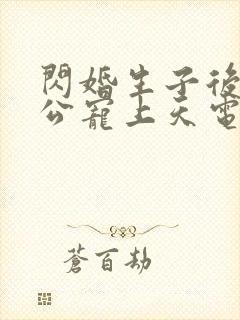 閃婚生子後
公寵上天電
蒼百劫